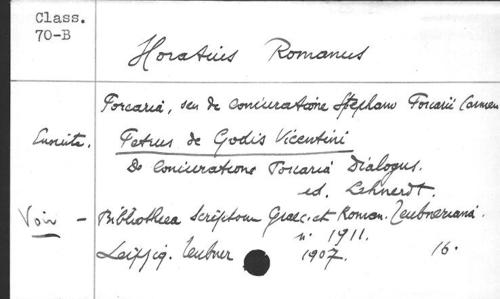 Class.
70-B
Horatius Romanus
Porcaria, seu de coniuratione Stephani Porcarii Carmen
Ensuite. Petrus de Godis Vicentini
De Coniuratione Porcaria Dialogus.
ed. Lehnerdt.
Voir - Bibliotheca Scriptorum Graec. et Roman. Teubneriana.
n. 1911.
Leipzig. Teubner 1907. 16.